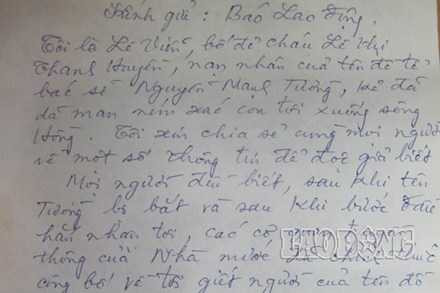 Kính gửi: Báo Lao Động.
Tôi là Lê Viễn, bố đẻ cháu Lê Thị
Thanh Huyền, nạn nhân của tên đồ tể
bác sĩ Nguyễn Mạnh Tường, kẻ đã
dã man ném xác con tôi xuống sông
Hồng. Tôi xin chia sẻ cùng mọi người
về một số thông tin để đọc giả biết
Mọi người đều biết, sau khi tên
Tường bị bắt và sau khi bước
hắn nhận tội, các cơ
thông của Nhà nước
công bố về tội giết người của tên đồ